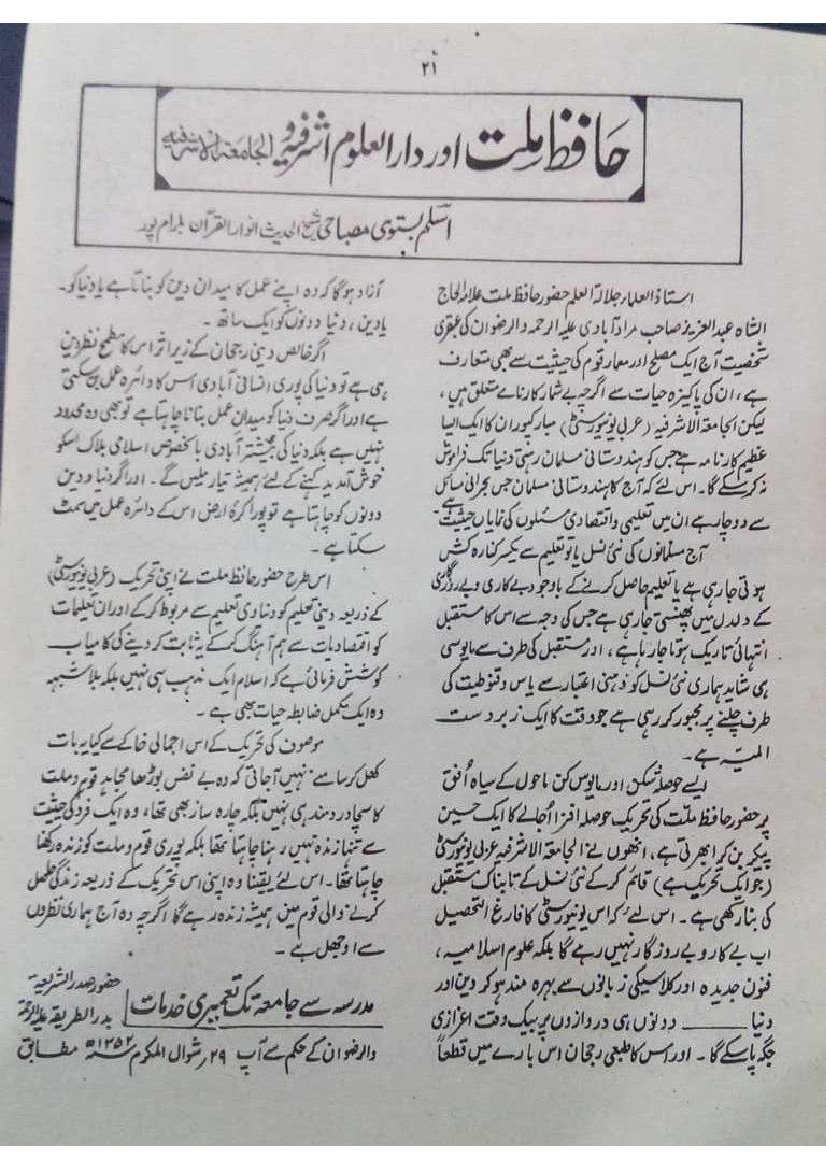 ۲۱
حافظ ملت اور دارالعلوم اشرفیہ و الجامعۃ الاشرفیہ
اسلم بستوی مصباحی شیخ الحدیث انوار القرآن بلرام پور
استاذ العلماء جلالۃ العلم حضور حافظ ملت علامہ الحاج
الشاہ عبدالعزیز صاحب مرادآبادی علیہ الرحمہ والرضوان کی عبقری
شخصیت آج ایک مصلح اور معمار قوم کی حیثیت سے بھی متعارف
ہے، ان کی پاکیزہ حیات سے اگرچہ بے شمار کارنامے متعلق ہیں،
لیکن الجامعۃ الاشرفیہ (عربی یونیورسٹی) مبارکپور ان کا ایک ایسا
عظیم کارنامہ ہے جس کو ہندوستانی مسلمان رہتی دنیا تک فراموش
نہ کر سکے گا۔ اس لئے کہ آج کا ہندوستانی مسلمان جس بحرانی مسائل
سے دوچار ہے ان میں تعلیمی و اقتصادی مسئلوں کی نمایاں حیثیت ہے
آج مسلمانوں کی نئی نسل یا تو تعلیم سے یکسر کنارہ کش
ہوتی جا رہی ہے یا تعلیم حاصل کرنے کے باوجود بے کاری و بے روزگاری
کے دلدل میں پھنستی جا رہی ہے جس کی وجہ سے اس کا مستقبل
انتہائی تاریک ہوتا جا رہا ہے، اور مستقبل کی طرف سے مایوسی
ہی شاید ہماری نئی نسل کو ذہنی اعتبار سے یاس و قنوطیت کی
طرف چلنے پر مجبور کر رہی ہے جو وقت کا ایک زبردست
المیہ ہے۔
ایسے حوصلہ شکن اور مایوس کن ماحول کے سیاہ اُفق
پر حضور حافظ ملت کی تحریک حوصلہ افزا اُجالے کا ایک حسین
پیکر بن کر ابھرتی ہے، انھوں نے الجامعۃ الاشرفیہ عربی یونیورسٹی
(جو ایک تحریک ہے) قائم کر کے نئی نسل کے تابناک مستقبل
کی بنا رکھی ہے۔ اس لئے کہ اس یونیورسٹی کا فارغ التحصیل
اب بے کار و بے روزگار نہیں رہے گا بلکہ علوم اسلامیہ،
فنون جدیدہ اور کلاسیکی زبانوں سے بہرہ مند ہو کر دین اور
دنیا ـــــــ دونوں ہی دروازوں پر بیک وقت اعزازی
جگہ پا سکے گا۔ اور اس کا طبعی رجحان اس بارے میں قطعاً
آزاد ہو گا کہ وہ اپنے عمل کا میدان دین کو بناتا ہے یا دنیا کو۔
یا دین، دنیا دونوں کو ایک ساتھ۔
اگر خالص دینی رجحان کے زیر اثر اس کا مطمح نظر دین
ہی ہے تو دنیا کی پوری انسانی آبادی اس کا دائرہ عمل بن سکتی
ہے اور اگر صرف دنیا کو میدان عمل بنانا چاہتا ہے تو بھی وہ محدود
نہیں ہے بلکہ دنیا کی بیشتر آبادی بالخصوص اسلامی بلاک اسکو
خوش آمدید کہنے کے لئے ہمیشہ تیار ملیں گے۔ اور اگر دنیا و دین
دونوں کو چاہتا ہے تو پورا کرۂ ارض اس کے دائرہ عمل میں سمٹ
سکتا ہے۔
اس طرح حضور حافظ ملت نے اپنی تحریک (عربی یونیورسٹی)
کے ذریعہ دینی تعلیم کو دنیاوی تعلیم سے مربوط کر کے اور ان تعلیمات
کو اقتصادیات سے ہم آہنگ کر کے یہ ثابت کر دینے کی کامیاب
کوشش فرمائی ہے کہ اسلام ایک مذہب ہی نہیں بلکہ بلاشبہہ
وہ ایک مکمل ضابطہ حیات بھی ہے۔
موصوف کی تحریک کے اس اجمالی خاکے سے کیا یہ بات
کھل کر سامنے نہیں آجاتی کہ وہ بے نفس بوڑھا مجاہد قوم و ملت
کا سچا درد مند ہی نہیں بلکہ چارہ ساز بھی تھا، وہ ایک فرد کی حیثیت
سے تنہا زندہ نہیں رہنا چاہتا تھا بلکہ پوری قوم و ملت کو زندہ رکھنا
چاہتا تھا۔ اس لئے یقیناً وہ اپنی اس تحریک کے ذریعہ زندگی حاصل
کرنے والی قوم میں ہمیشہ زندہ رہے گا اگرچہ وہ آج ہماری نظروں
سے اوجھل ہے۔
مدرسہ سے جامعہ تک تعمیری خدمات
حضور صدر الشریعہ
بدر الطریقہ علیہ الرحمۃ
والرضوان کے حکم سے آپ ۲۹ر شوال المکرم ۱۳۵۲ھ مطابق